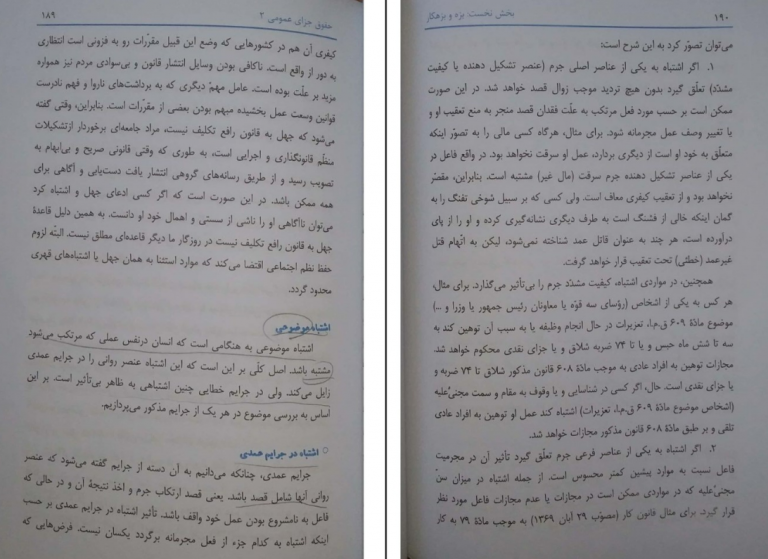 حقوق جزای عمومی ۲ ۱۸۹
کیفری آن هم در کشورهایی که وضع این قبیل مقرّرات رو به فزونی است انتظاری
به دور از واقع است. ناکافی بودن وسایل انتشار قانون و بی‌سوادی مردم نیز همواره
مزید بر علّت بوده است، عامل مهمّ دیگری که به برداشت‌های ناروا و فهم نادرست
قوانین وسعت عمل بخشیده مبهم بودن بعضی از مقرّرات است. بنابراین، وقتی گفته
می‌شود که جهل به قانون رافع تکلیف نیست، مراد جامعه‌ای برخوردار ازتشکیلات
منظّم قانونگذاری و اجرایی است، به طوری که وقتی قانونی صریح و بی‌ابهام به
تصویب رسید و از طریق رسانه‌های گروهی انتشار یافت دست‌یابی و آگاهی برای
همه ممکن باشد. در این صورت است که اگر کسی ادعای جهل و اشتباه کرد
می‌توان ناآگاهی او را ناشی از سستی و اهمال خود او دانست. به همین دلیل قاعدهٔ
جهل به قانون رافع تکلیف نیست در روزگار ما دیگر قاعده‌ای مطلق نیست. البتّه لزوم
حفظ نظم اجتماعی اقتضا می‌کند که موارد استثنا به همان جهل یا اشتباه‌های قهری
محدود گردد.
اشتباه موضوعی
اشتباه موضوعی به هنگامی است که انسان درنفس عملی که مرتکب می‌شود
مشتبه باشد. اصل کلّی بر این است که این اشتباه عنصر روانی را در جرایم عمدی
زایل می‌کند. ولی در جرایم خطایی چنین اشتباهی به ظاهر بی‌تأثیر است. بر این
اساس به بررسی موضوع در هر یک از جرایم مذکور می‌پردازیم.
○ اشتباه در جرایم عمدی
جرایم عمدی، چنانکه می‌دانیم به آن دسته از جرایم گفته می‌شود که عنصر
روانی آنها شامل قصد باشد. یعنی قصد ارتکاب جرم و اخذ نتیجهٔ آن و در حالی که
فاعل به نامشروع بودن عمل خود واقف باشد. تأثیر اشتباه در جرایم عمدی بر حسب
اینکه اشتباه به کدام جزء از فعل مجرمانه برگردد یکسان نیست. فرض‌هایی که
۱۹۰ بخش نخست: بزه و بزهکار
می‌توان تصوّر کرد به این شرح است:
۱. اگر اشتباه به یکی از عناصر اصلی جرم (عنصر تشکیل دهنده یا کیفیت
مشدّد) تعلّق گیرد بدون هیچ تردید موجب زوال قصد خواهد شد. در این صورت
ممکن است بر حسب مورد فعل مرتکب به علّت فقدان قصد منجر به منع تعقیب او و
یا تغییر وصف عمل مجرمانه شود. برای مثال، هرگاه کسی مالی را به تصوّر اینکه
متعلّق به خود او است از دیگری بردارد، عمل او سرقت نخواهد بود. در واقع فاعل در
یکی از عناصر تشکیل دهنده جرم سرقت (مال غیر) مشتبه است. بنابراین، مقصّر
نخواهد بود و از تعقیب کیفری معاف است. ولی کسی که بر سبیل شوخی تفنگ را به
گمان اینکه خالی از فشنگ است به طرف دیگری نشانه‌گیری کرده و او را از پای
درآورده است، هر چند به عنوان قاتل عمد شناخته نمی‌شود، لیکن به اتّهام قتل
غیرعمد (خطئی) تحت تعقیب قرار خواهد گرفت.
همچنین، در مواردی اشتباه، کیفیت مشدّد جرم را بی‌تأثیر می‌گذارد. برای مثال،
هر کس به یکی از اشخاص (رؤسای سه قوّه یا معاونان رئیس جمهور یا وزرا و ...)
موضوع مادّهٔ ۶۰۹ ق.م.ا، تعزیرات در حال انجام وظیفه یا به سبب آن توهین کند به
سه تا شش ماه حبس و یا تا ۷۴ ضربه شلاق و یا جزای نقدی محکوم خواهد شد.
مجازات توهین به افراد عادی به موجب مادّهٔ ۶۰۸ قانون مذکور شلاق تا ۷۴ ضربه و
یا جزای نقدی است. حال، اگر کسی در شناسایی و یا وقوف به مقام و سمت مجنیّ‌علیه
(اشخاص موضوع مادّهٔ ۶۰۹ ق.م.ا، تعزیرات) اشتباه کند عمل او توهین به افراد عادی
تلقی و بر طبق مادّهٔ ۶۰۸ قانون مذکور مجازات خواهد شد.
۲. اگر اشتباه به یکی از عناصر فرعی جرم تعلّق گیرد تأثیر آن در مجرمیت
فاعل نسبت به موارد پیشین کمتر محسوس است. از جمله اشتباه در میزان سنّ
مجنیّ‌علیه که در مواردی ممکن است در مجازات یا عدم مجازات فاعل مورد نظر
قرار گیرد. برای مثال قانون کار (مصوّب ۲۹ آبان ۱۳۶۹) به موجب مادّهٔ ۷۹ به کار